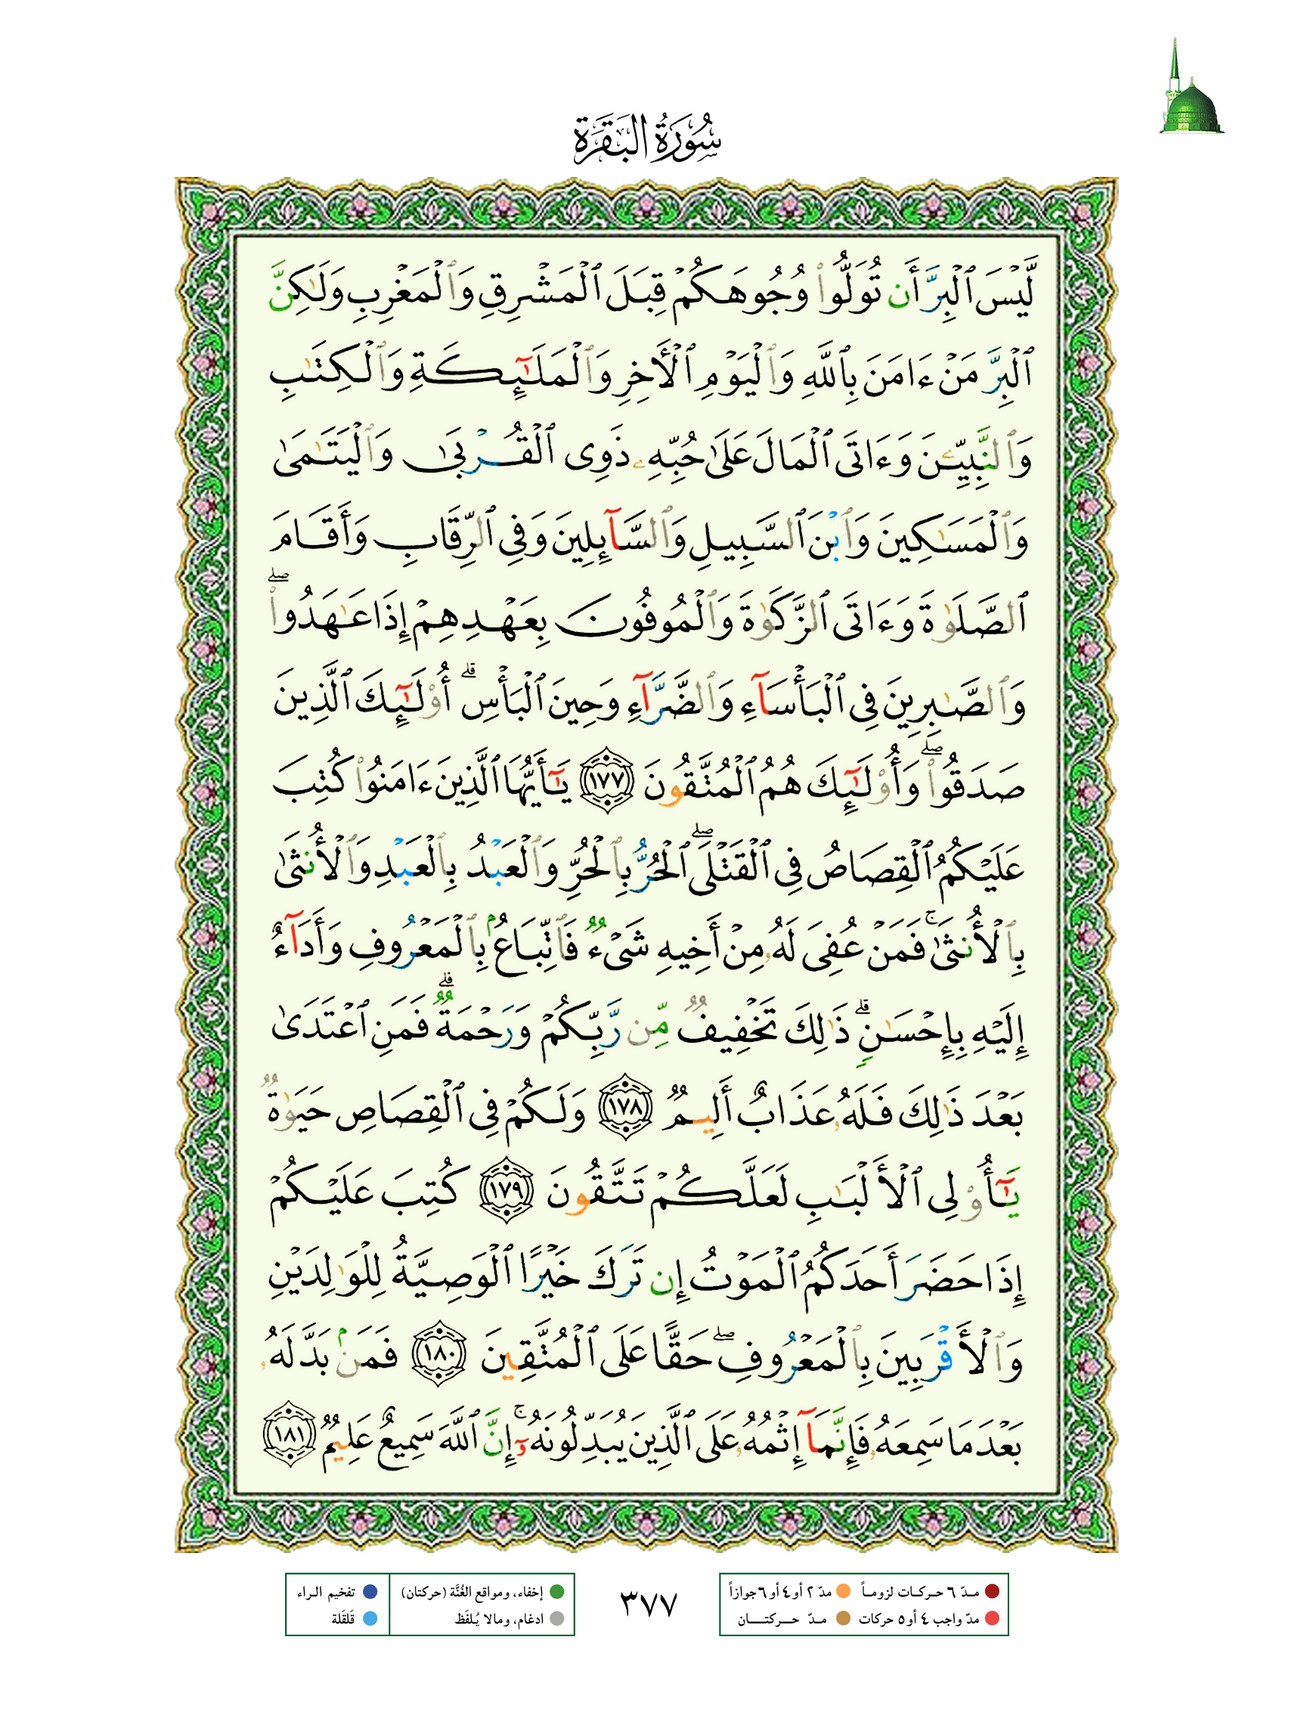 سُورَةُ البَقَرَة
لَّيْسَ ٱلْبِرَّ أَن تُوَلُّوا۟ وُجُوهَكُمْ قِبَلَ ٱلْمَشْرِقِ وَٱلْمَغْرِبِ وَلَـٰكِنَّ
ٱلْبِرَّ مَنْ ءَامَنَ بِٱللَّهِ وَٱلْيَوْمِ ٱلْأَخِرِ وَٱلْمَلَـٰٓئِكَةِ وَٱلْكِتَـٰبِ
وَٱلنَّبِيِّـۧنَ وَءَاتَى ٱلْمَالَ عَلَىٰ حُبِّهِۦ ذَوِى ٱلْقُرْبَىٰ وَٱلْيَتَـٰمَىٰ
وَٱلْمَسَـٰكِينَ وَٱبْنَ ٱلسَّبِيلِ وَٱلسَّآئِلِينَ وَفِى ٱلرِّقَابِ وَأَقَامَ
ٱلصَّلَوٰةَ وَءَاتَى ٱلزَّكَوٰةَ وَٱلْمُوفُونَ بِعَهْدِهِمْ إِذَا عَـٰهَدُوا۟ ۖ
وَٱلصَّـٰبِرِينَ فِى ٱلْبَأْسَآءِ وَٱلضَّرَّآءِ وَحِينَ ٱلْبَأْسِ ۗ أُو۟لَـٰٓئِكَ ٱلَّذِينَ
صَدَقُوا۟ ۖ وَأُو۟لَـٰٓئِكَ هُمُ ٱلْمُتَّقُونَ ١٧٧ يَـٰٓأَيُّهَا ٱلَّذِينَ ءَامَنُوا۟ كُتِبَ
عَلَيْكُمُ ٱلْقِصَاصُ فِى ٱلْقَتْلَى ۖ ٱلْحُرُّ بِٱلْحُرِّ وَٱلْعَبْدُ بِٱلْعَبْدِ وَٱلْأُنثَىٰ
بِٱلْأُنثَىٰ ۚ فَمَنْ عُفِىَ لَهُۥ مِنْ أَخِيهِ شَىْءٌ فَٱتِّبَاعٌۢ بِٱلْمَعْرُوفِ وَأَدَآءٌ
إِلَيْهِ بِإِحْسَـٰنٍ ۗ ذَٰلِكَ تَخْفِيفٌ مِّن رَّبِّكُمْ وَرَحْمَةٌ ۗ فَمَنِ ٱعْتَدَىٰ
بَعْدَ ذَٰلِكَ فَلَهُۥ عَذَابٌ أَلِيمٌ ١٧٨ وَلَكُمْ فِى ٱلْقِصَاصِ حَيَوٰةٌ
يَـٰٓأُو۟لِى ٱلْأَلْبَـٰبِ لَعَلَّكُمْ تَتَّقُونَ ١٧٩ كُتِبَ عَلَيْكُمْ
إِذَا حَضَرَ أَحَدَكُمُ ٱلْمَوْتُ إِن تَرَكَ خَيْرًا ٱلْوَصِيَّةُ لِلْوَٰلِدَيْنِ
وَٱلْأَقْرَبِينَ بِٱلْمَعْرُوفِ ۖ حَقًّا عَلَى ٱلْمُتَّقِينَ ١٨٠ فَمَنۢ بَدَّلَهُۥ
بَعْدَ مَا سَمِعَهُۥ فَإِنَّمَآ إِثْمُهُۥ عَلَى ٱلَّذِينَ يُبَدِّلُونَهُۥٓ ۚ إِنَّ ٱللَّهَ سَمِيعٌ عَلِيمٌ ١٨١
مدّ ٦ حركات لزوماً مدّ ٢ أو ٤ أو ٦ جوازاً
مدّ واجب ٤ أو ٥ حركات مدّ حركتان
٣٧٧
إخفاء، ومواقع الغُنَّة (حركتان) تفخيم الراء
ادغام، ومالا يُلفَظ قلقلة